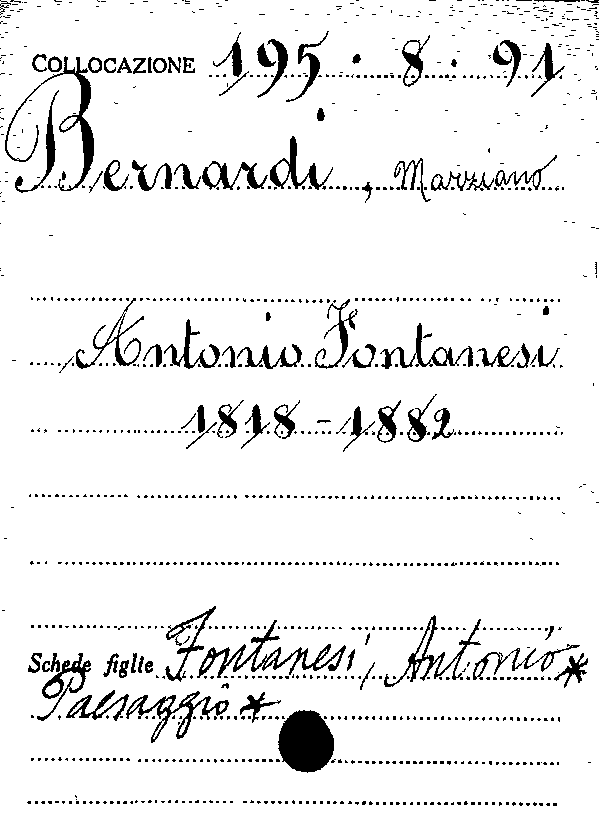 COLLOCAZIONE 195 · 8 · 91
Bernardi, Marziano
Antonio Fontanesi
1818 - 1882
Schede figlie Fontanesi, Antonio *
Paesaggio *